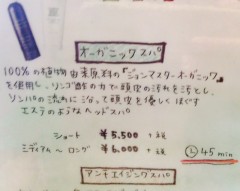 オーガニックスパ
100%の植物由来原料の『ジョンマスターオーガニック』
を使用し、リンゴ酢の力で頭皮の汚れを落とし、
リンパの流れに沿って頭皮を優しくほぐす
エステのようなヘッドスパ
ショート ¥5,500 +税
ミディアム～ロング ¥6,000 +税 45min
アンチエイジングスパ